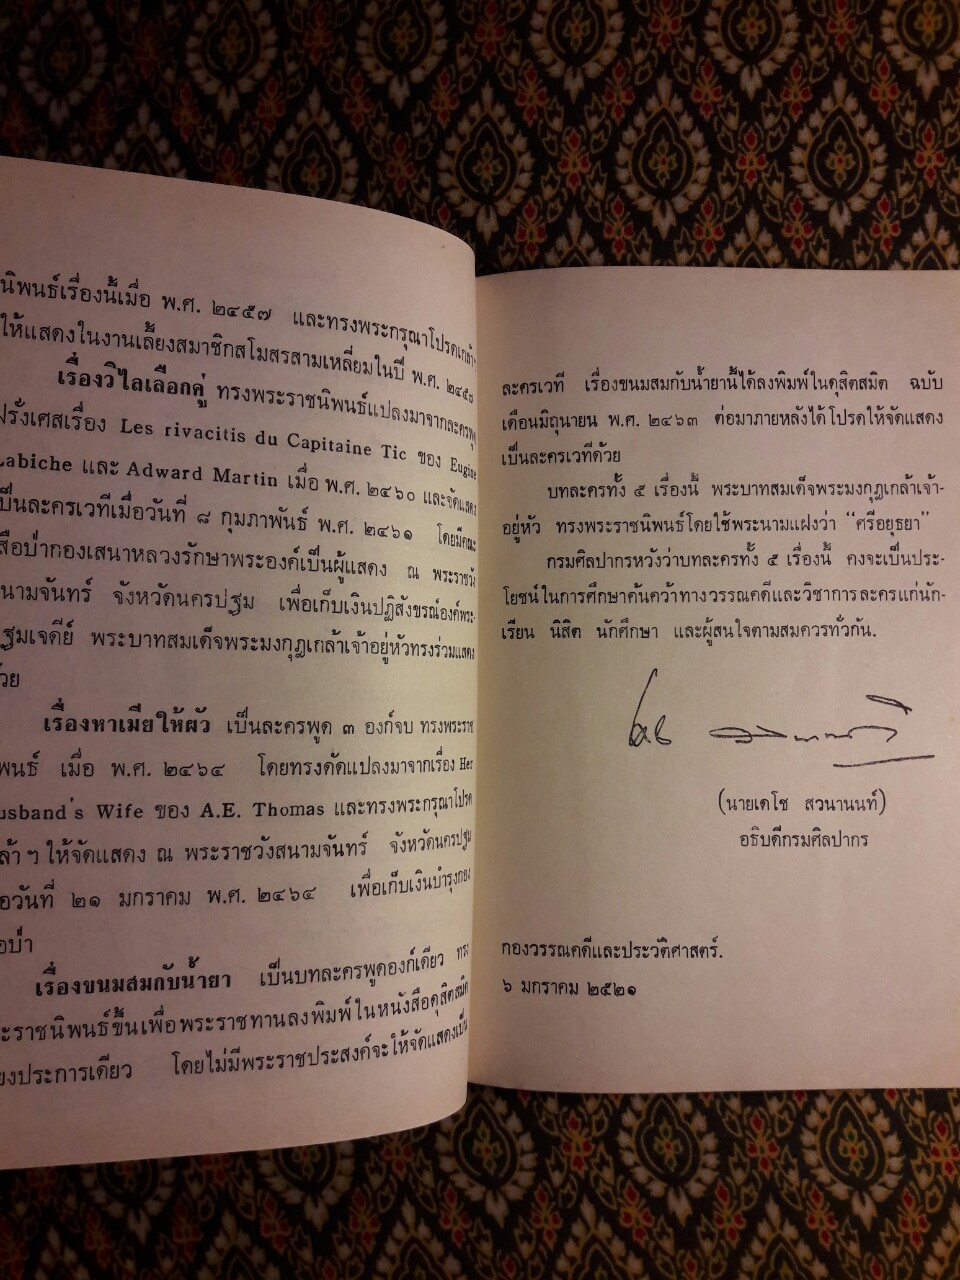 นิพนธ์เรื่องนี้เมื่อ พ.ศ. ๒๔๕๗ และทรงพระกรุณาโปรดเกล้าฯ
ให้แสดงในงานเลี้ยงสมาชิกสโมสรสามเหลี่ยมในปี พ.ศ. ๒๔๕๗
เรื่องวิไลเลือกคู่ ทรงพระราชนิพนธ์แปลงมาจากละครพูด
ฝรั่งเศสเรื่อง Les rivacitis du Capitaine Tic ของ Eugine
Labiche และ Adward Martin เมื่อ พ.ศ. ๒๔๖๐ และจัดแสดง
เป็นละครเวทีเมื่อวันที่ ๘ กุมภาพันธ์ พ.ศ. ๒๔๖๑ โดยมีคณะ
เสือป่ากองเสนาหลวงรักษาพระองค์เป็นผู้แสดง ณ พระราชวัง
สนามจันทร์ จังหวัดนครปฐม เพื่อเก็บเงินปฏิสังขรณ์องค์พระ-
ปฐมเจดีย์ พระบาทสมเด็จพระมงกุฎเกล้าเจ้าอยู่หัวทรงร่วมแสดง
ด้วย
เรื่องหาเมียให้ผัว เป็นละครพูด ๓ องก์จบ ทรงพระราช
นิพนธ์ เมื่อ พ.ศ. ๒๔๖๔ โดยทรงดัดแปลงมาจากเรื่อง Her
Husband's Wife ของ A.E. Thomas และทรงพระกรุณาโปรด
เกล้า ฯ ให้จัดแสดง ณ พระราชวังสนามจันทร์ จังหวัดนครปฐม
เมื่อวันที่ ๒๑ มกราคม พ.ศ. ๒๔๖๔ เพื่อเก็บเงินบำรุงกอง
เสือป่า
เรื่องขนมสมกับน้ำยา เป็นบทละครพูดองก์เดียว ทรง
พระราชนิพนธ์ขึ้นเพื่อพระราชทานลงพิมพ์ในหนังสือดุสิตสมิต
เพียงประการเดียว โดยไม่มีพระราชประสงค์จะให้จัดแสดงเป็น
ละครเวที เรื่องขนมสมกับน้ำยานี้ได้ลงพิมพ์ในดุสิตสมิต ฉบับ
เดือนมิถุนายน พ.ศ. ๒๔๖๓ ต่อมาภายหลังได้โปรดให้จัดแสดง
เป็นละครเวทีด้วย
บทละครทั้ง ๕ เรื่องนี้ พระบาทสมเด็จพระมงกุฎเกล้าเจ้า-
อยู่หัว ทรงพระราชนิพนธ์โดยใช้พระนามแฝงว่า “ศรีอยุธยา”
กรมศิลปากรหวังว่าบทละครทั้ง ๕ เรื่องนี้ คงจะเป็นประ-
โยชน์ในการศึกษาค้นคว้าทางวรรณคดีและวิชาการละครแก่นัก-
เรียน นิสิต นักศึกษา และผู้สนใจตามสมควรทั่วกัน.
(นายเดโช สวนานนท์)
อธิบดีกรมศิลปากร
กองวรรณคดีและประวัติศาสตร์.
๖ มกราคม ๒๕๒๑